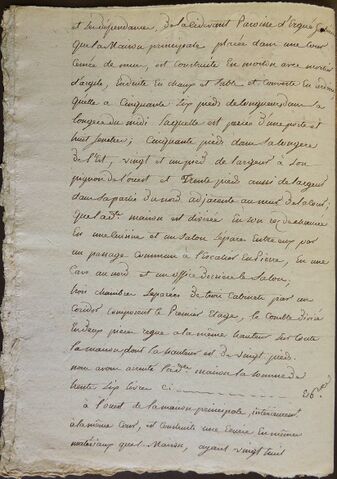 et ses dépendances, de la cidevant Paroisse d'Ergué
Que la Maison principale, placée dans une cour
cernée de murs, est construite en moëlon avec mortier
d'argile, Enduite En chaux et sable et couverte En ardoise
qu'elle a Cinquante Six pieds de longueur, dans la
longère du midi laquelle est percée d'une porte et
huit fenêtres; Cinquante pieds dans la longère
de l'Est, vingt et un pieds de largeur à son
pignon de l'ouest et Trente pieds aussi de largeur
dans la partie du nord adjacente au mur de la cour;
Que lad.te maison est divisée En son rez de chaussée
En une Cuisine et un Salon Séparés Entre eux par
un passage commun à l'Escalier En pierre, En une
Cave au nord et un office derrière le Salon;
trois chambres Séparées de trois Cabinets par un
Coridor composent le Premier Etage, le Comble divisé
En deux pièces règne à la même hauteur Sur toute
la maison dont la hauteur est de vingt pieds.
nous avons arrenté lad.te maison la somme de
trente Six livres Ci 36
à l'ouest de la maison principale, intérieurement
à la même Cour, est construite une Ecurie En mêmes
matériaux que la Maison, ayant vingt huit